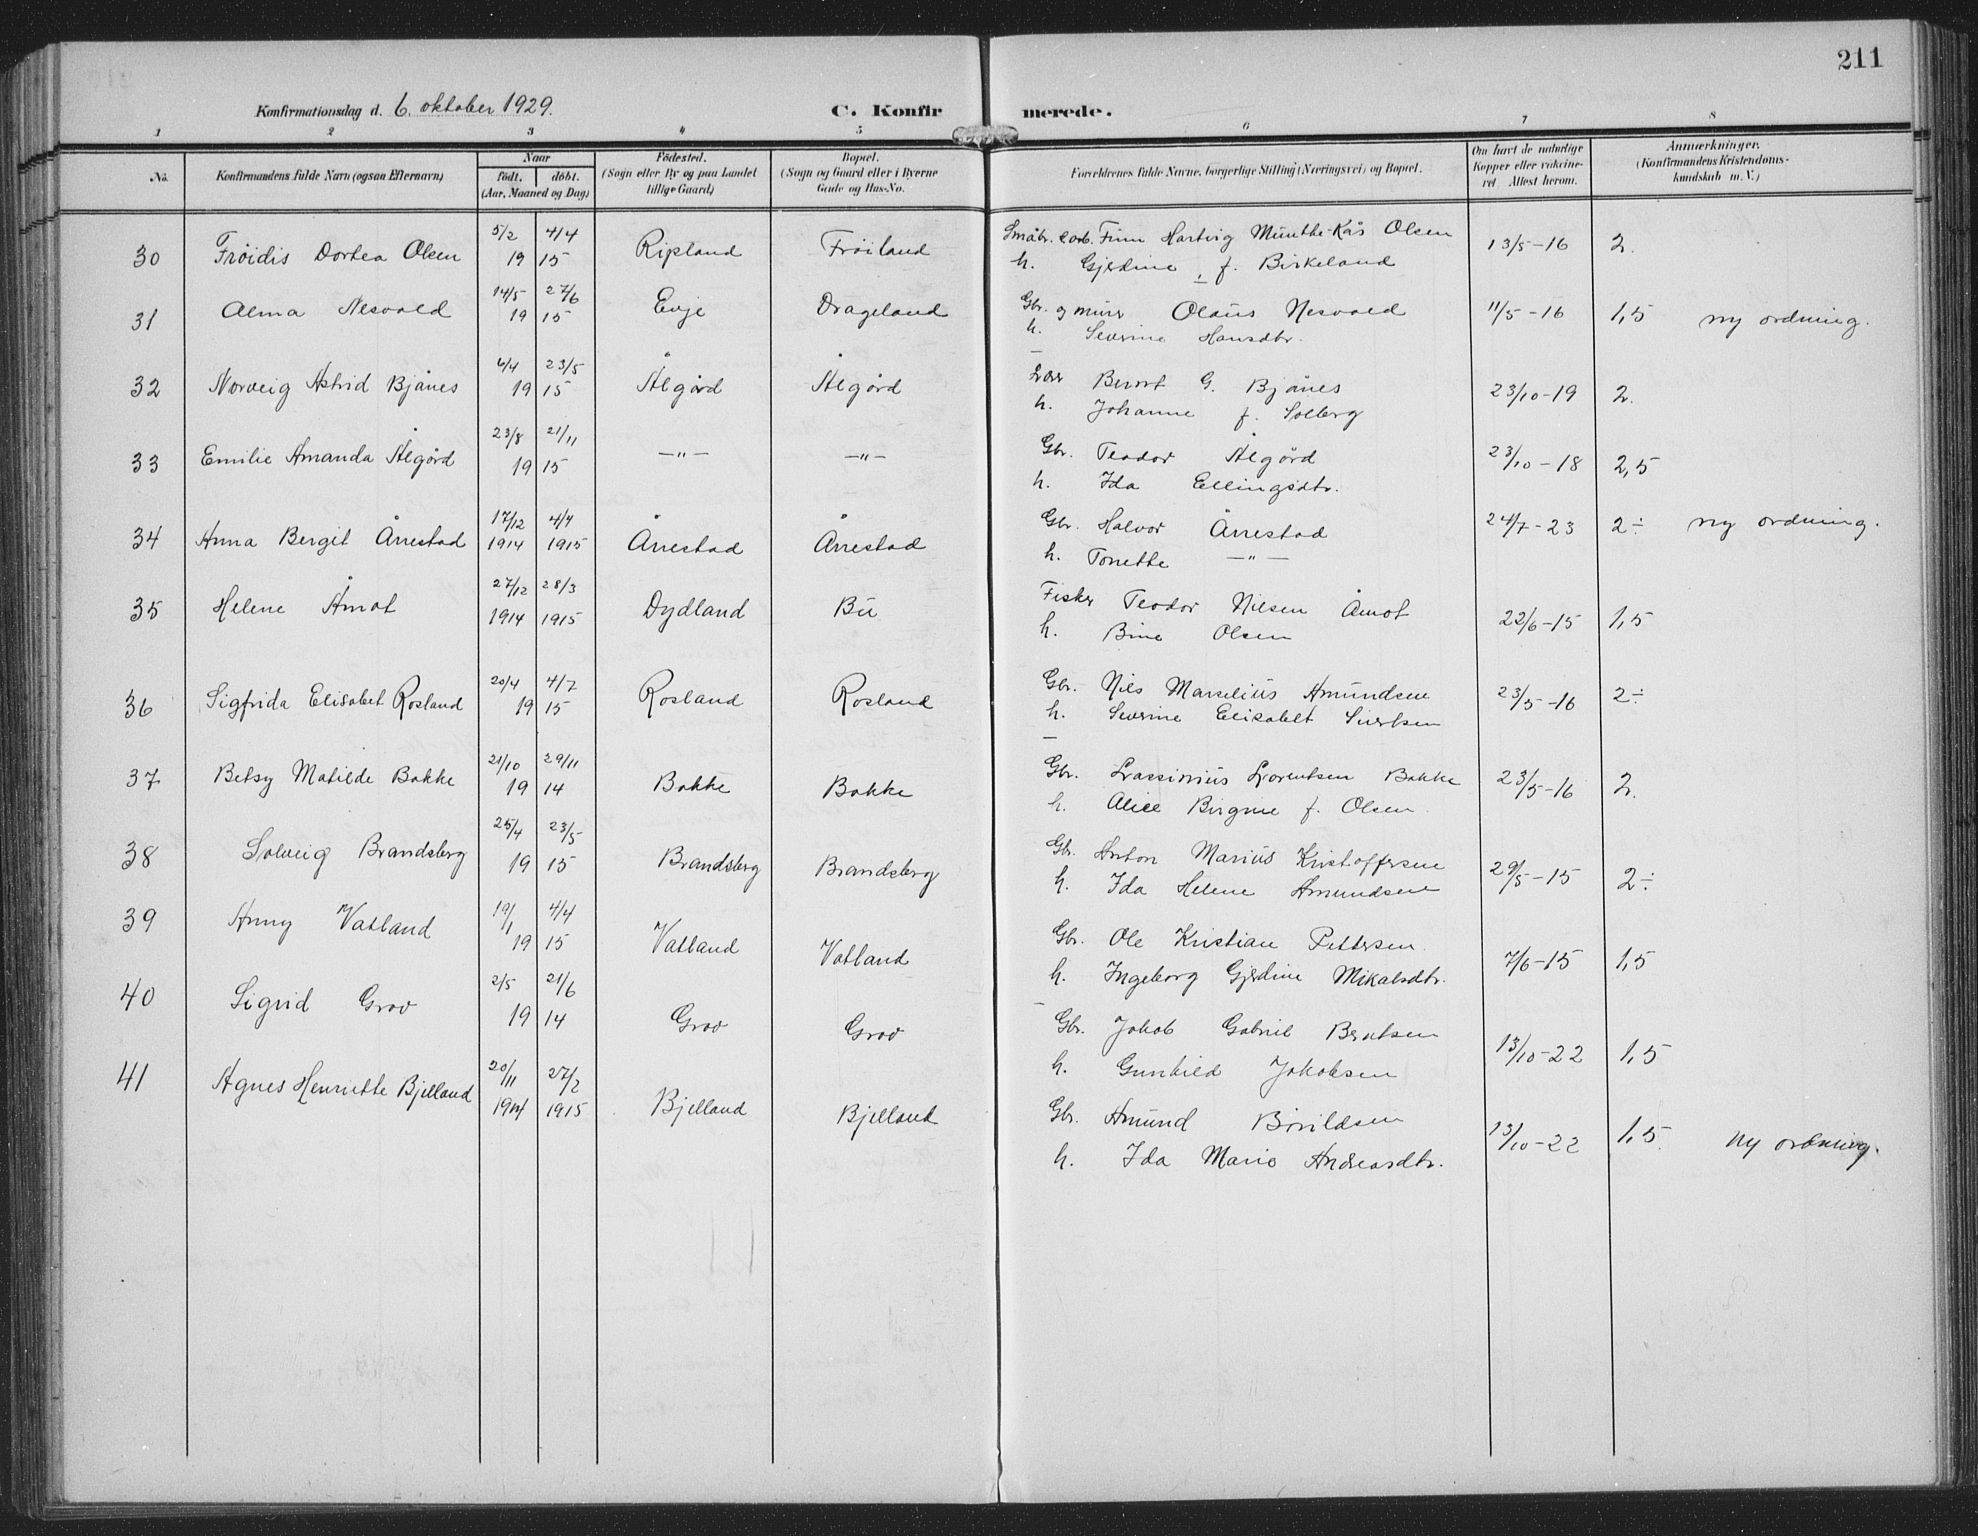 211
Konfirmationsdag d. 6. oktober 1929.
C. Konfirmerede.
1 2 3 4 5 6 7 8
No. Konfirmandens fulde Navn (ogsaa Efternavn) Naar født. døbt. (Aar, Maaned og Dag) Fødested. (Sogn eller By og paa Landet tillige Gaard) Bopæl. (Sogn og Gaard eller i Byerne Gade og Hus-No. Forældrenes fulde Navne, borgerlige Stilling (Næringsvei) og Bopæl. Om havt de naturlige Kopper eller vaccineret Attest herom. Anmærkninger. (Konfirmandens Kristendomskundskab m. V.)
30 Frøidis Dortea Olsen 5/2 19 4/4 15 Ripland Frøiland Småbr. Finn Hartvig Munthe-Kås Olsen 13/5-16 2.
h. Gjerdine, f. Birkeland
31 Alma Nesvold 14/5 19 27/6 15 Evje Drageland Gbr. og murer Olaus Nesvold 11/5-16 1,5 ny ordning.
h. Severine Hansdtr.
32 Norveig Astrid Bjånes 4/4 19 23/5 15 Ålgård Ålgård Lærer Berent G. Bjånes 23/10-19 2.
h. Johanne f. Solberg
33 Emilie Amanda Ålgård 23/8 19 21/11 15 —"— —"— Gbr. Teodor Ålgård 23/10-18 2,5
h. Ida Ellingsdtr.
34 Anna Bergit Årrestad 17/12 1914 4/4 1915 Årrestad Årrestad Gbr. Halvor Årrestad 24/7-23 2÷ ny ordning.
h. Tonette —"—
35 Helene Åmot 27/12 1914 28/3 1915 Dydland Bu Fisker Teodor Nilsen Åmot 22/6-15 1,5
h. Bine Olsen
36 Sigfrida Elisabet Rosland 20/4 19 4/7 15 Rosland Rosland Gbr. Nils Marselius Amundsen 23/5-16 2÷
h. Severine Elisabet Sivertsen
37 Betsy Matilde Bakke 21/10 19 29/11 14 Bakke Bakke Gbr. Lorentsen Bakke 23/5-16 2.
h. Alice Birgine f. Olsen.
38 Solveig Brandsberg 25/4 19 23/5 15 Brandsberg Brandsberg Gbr. Anton Marius Kristoffersen 29/5-15 2÷
h. Ida Helene Amundsen
39 Anny Vatland 19/1 19 4/4 15 Vatland Vatland Gbr. Ole Kristian Pettersen. 7/6-15 1,5
h. Ingeborg Gjerdine Mikalsdtr.
40 Sigrid Grov 2/5 19 21/6 14 Grov Grov Gbr. Jakob Gabriel Berntsen 13/10-22 1,5
h. Gunhild Jakobsen
41 Agnes Henriette Bjelland 20/11 1914 27/2 1915 Bjelland Bjelland Gbr. Amund Børildsen 13/10-22 1,5. ny ordning.
h. Ida Marie Andreasdtr.